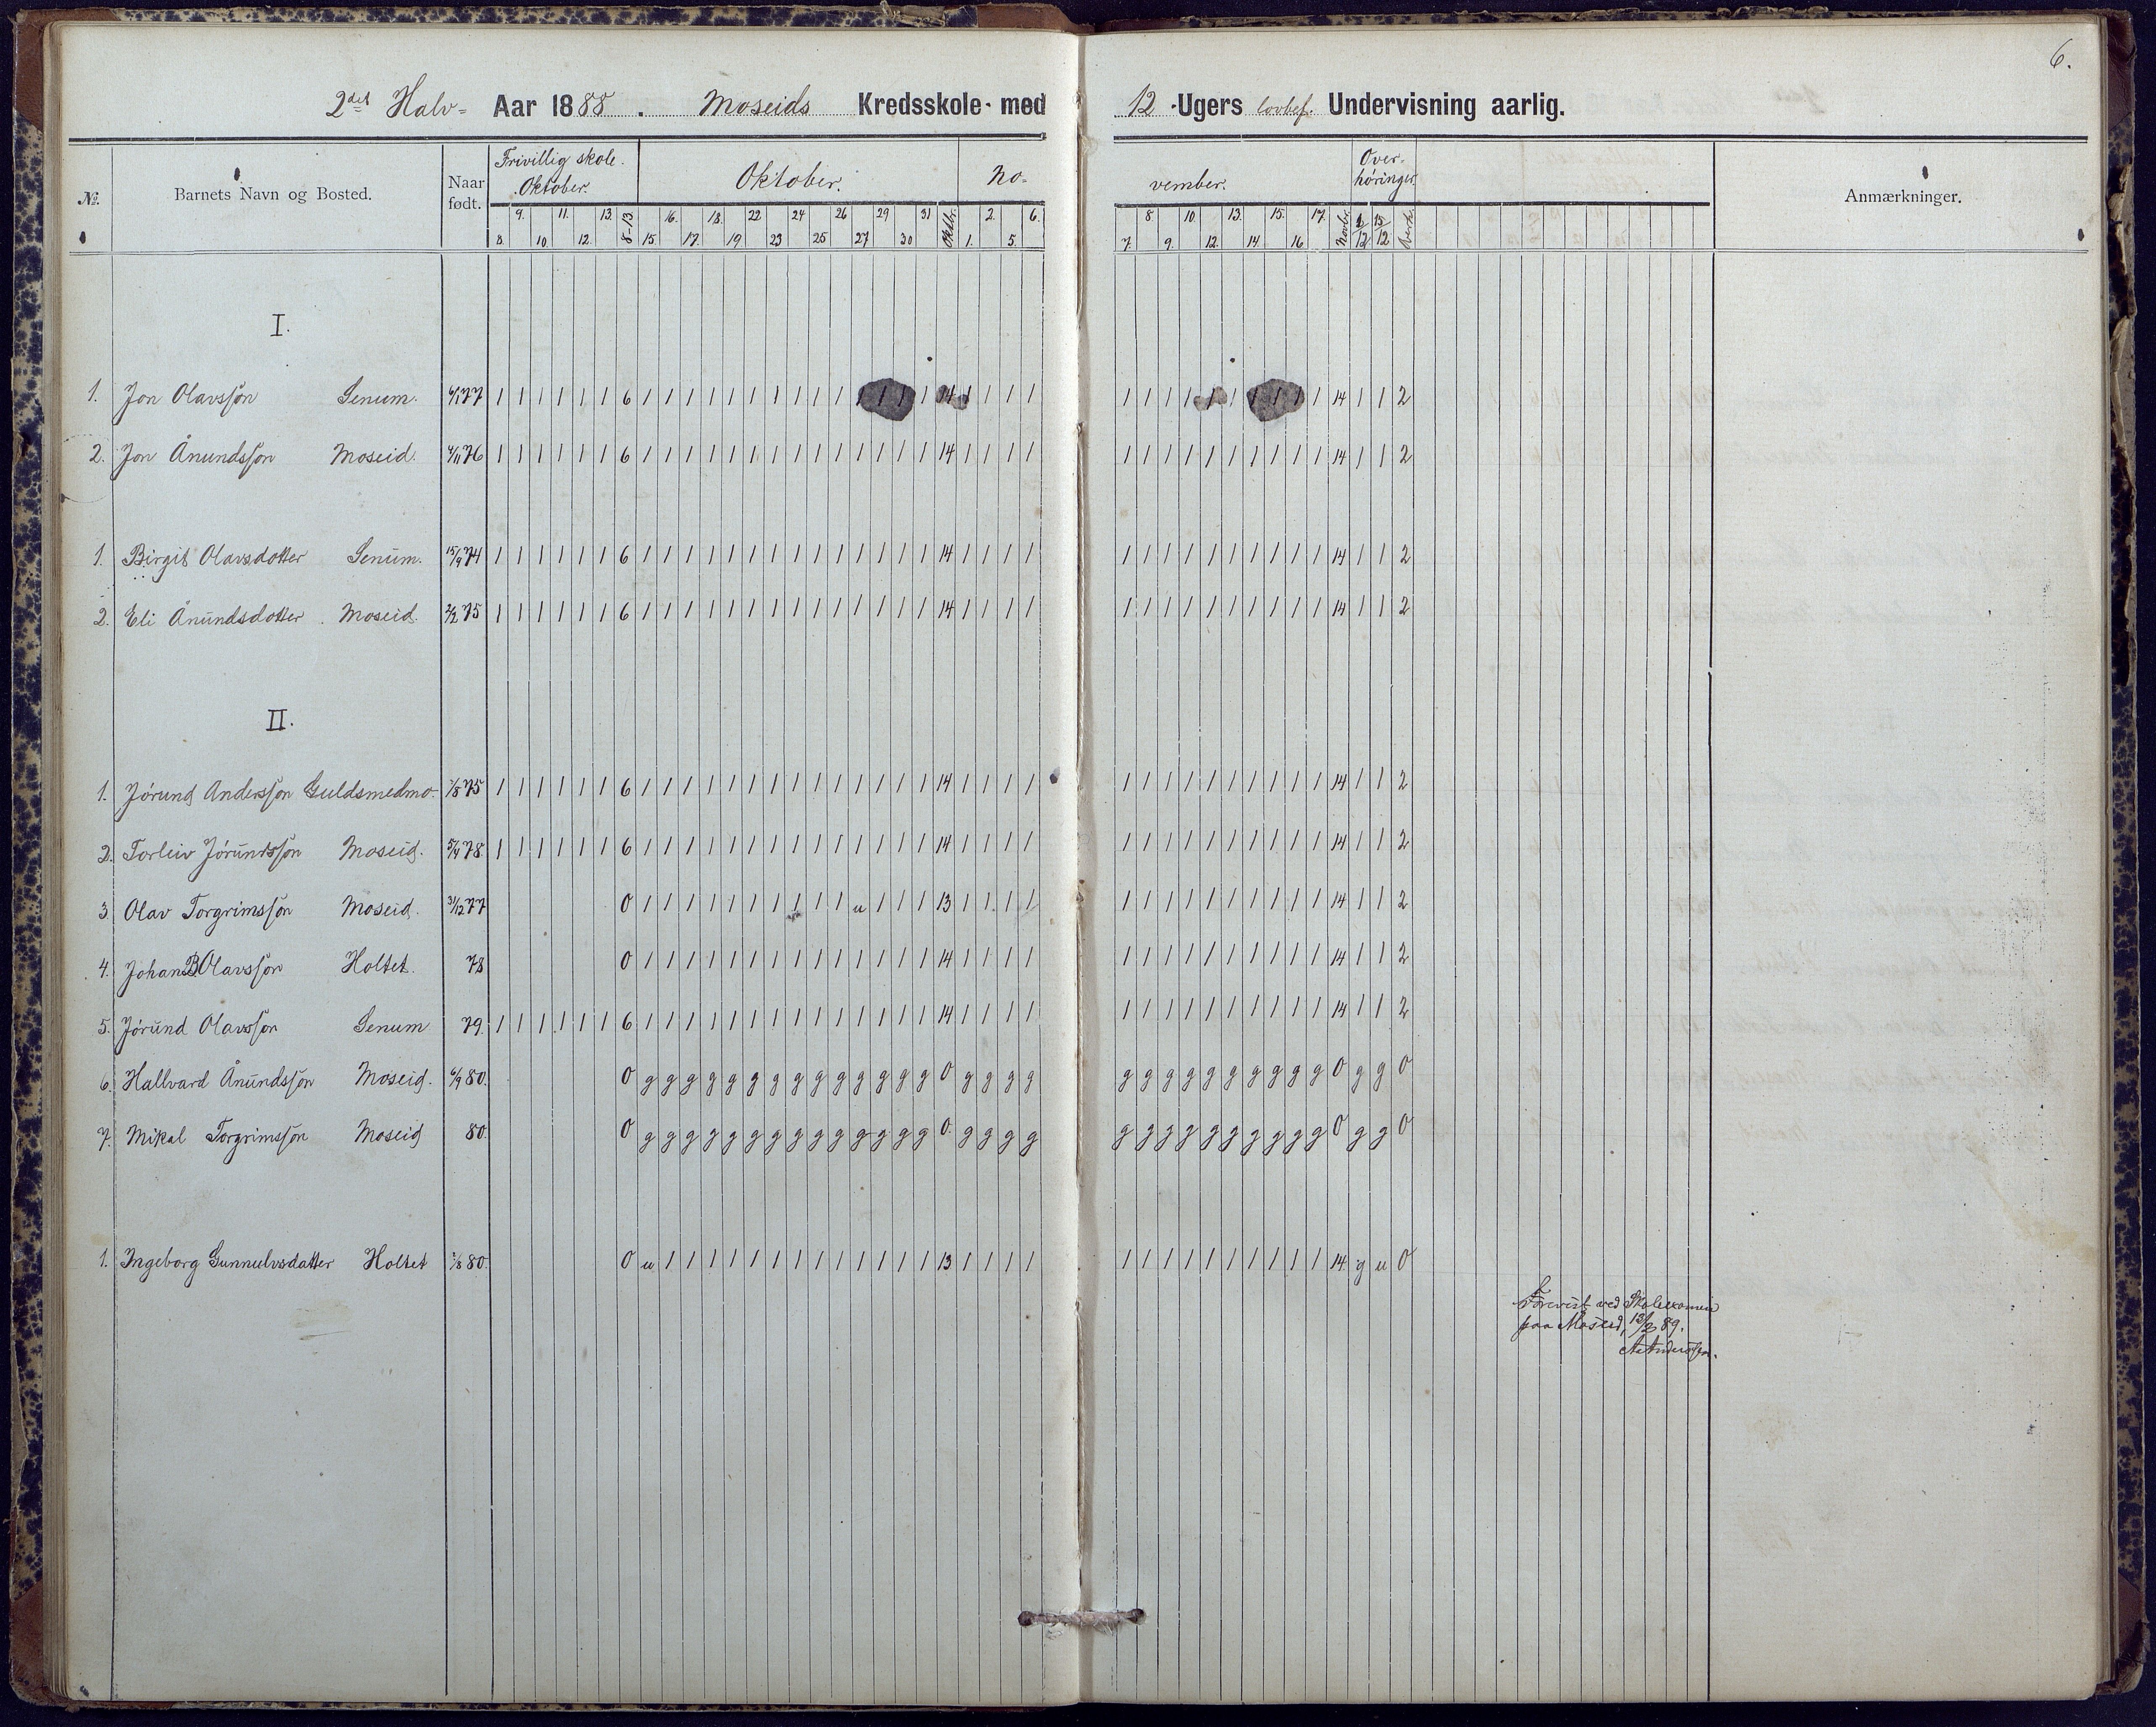 6.
2det Halv- Aar 1888. Moseids Kredsskole- med 12 -Ugers lovbef. Undervisning aarlig.
№. Barnets Navn og Bosted. Naar født. Frivillig skole. Oktober. Oktober. No- vember. Over- høringer. Anmærkninger.
9. 11. 13. 8-13 16. 18. 22 24 26 29 31 Oktbr. 2. 6. 8 10. 13. 15. 17. Novbr. 15/12
8. 10. 12. 15. 17. 19. 23 25 27 30 1. 5. 7. 9. 12. 14. 16
I.
1. Jon Olavssøn Senum. 77 1 1 1 1 1 1 6 1 1 1 1 1 1 1 1 1 1 1 1 1 1 14 1 1 1 1 1 1 1 1 1 1 1 1 1 1 14 1 1 2
2. Jon Ånundssøn Moseid. 4/11 76 1 1 1 1 1 1 6 1 1 1 1 1 1 1 1 1 1 1 1 1 1 14 1 1 1 1 1 1 1 1 1 1 1 1 1 1 14 1 1 2
1. Birgit Olavsdotter Senum. 15/9 74 1 1 1 1 1 1 6 1 1 1 1 1 1 1 1 1 1 1 1 1 1 14 1 1 1 1 1 1 1 1 1 1 1 1 1 1 14 1 1 2
2. Eli Ånundsdotter Moseid. 2/2 75 1 1 1 1 1 1 6 1 1 1 1 1 1 1 1 1 1 1 1 1 1 14 1 1 1 1 1 1 1 1 1 1 1 1 1 1 14 1 1 2
II.
1. Jørund Anderssøn Guldsmedmo. 75 1 1 1 1 1 1 6 1 1 1 1 1 1 1 1 1 1 1 1 1 1 14 1 1 1 1 1 1 1 1 1 1 1 1 1 1 14 1 1 2
2. Torleiv Jørundssøn Moseid. 78. 1 1 1 1 1 1 6 1 1 1 1 1 1 1 1 1 1 1 1 1 1 14 1 1 1 1 1 1 1 1 1 1 1 1 1 1 14 1 1 2
3. Olav Torgrimssøn Moseid. 31/12 77 0 1 1 1 1 1 1 1 1 1 1 u 1 1 1 13 1 1 1 1 1 1 1 1 1 1 1 1 1 1 14 1 1 2
4. Johan B Olavssøn Holtet. 78 0 1 1 1 1 1 1 1 1 1 1 1 1 1 1 14 1 1 1 1 1 1 1 1 1 1 1 1 1 1 14 1 1 2
5. Jørund Olavssøn Senum 79. 1 1 1 1 1 1 6 1 1 1 1 1 1 1 1 1 1 1 1 1 1 14 1 1 1 1 1 1 1 1 1 1 1 1 1 1 14 1 1 2
6. Hallvard Ånundssøn Moseid. 6/9 80. 0 g g g g g g g g g g g g g g 0 g g g g g g g g g g g g g g 0 g g 0
7. Mikal Torgrimssøn Moseid 80. 0 g g g g g g g g g g g g g g 0. g g g g g g g g g g g g g g 0 g g 0
1. Ingeborg Gunnulvsdatter Holtet 80. 0 u 1 1 1 1 1 1 1 1 1 1 1 1 1 13 1 1 1 1 1 1 1 1 1 1 1 1 1 1 14. g u 0
Forevist ved Skoleexamen
paa Moseid, 13/2 89.